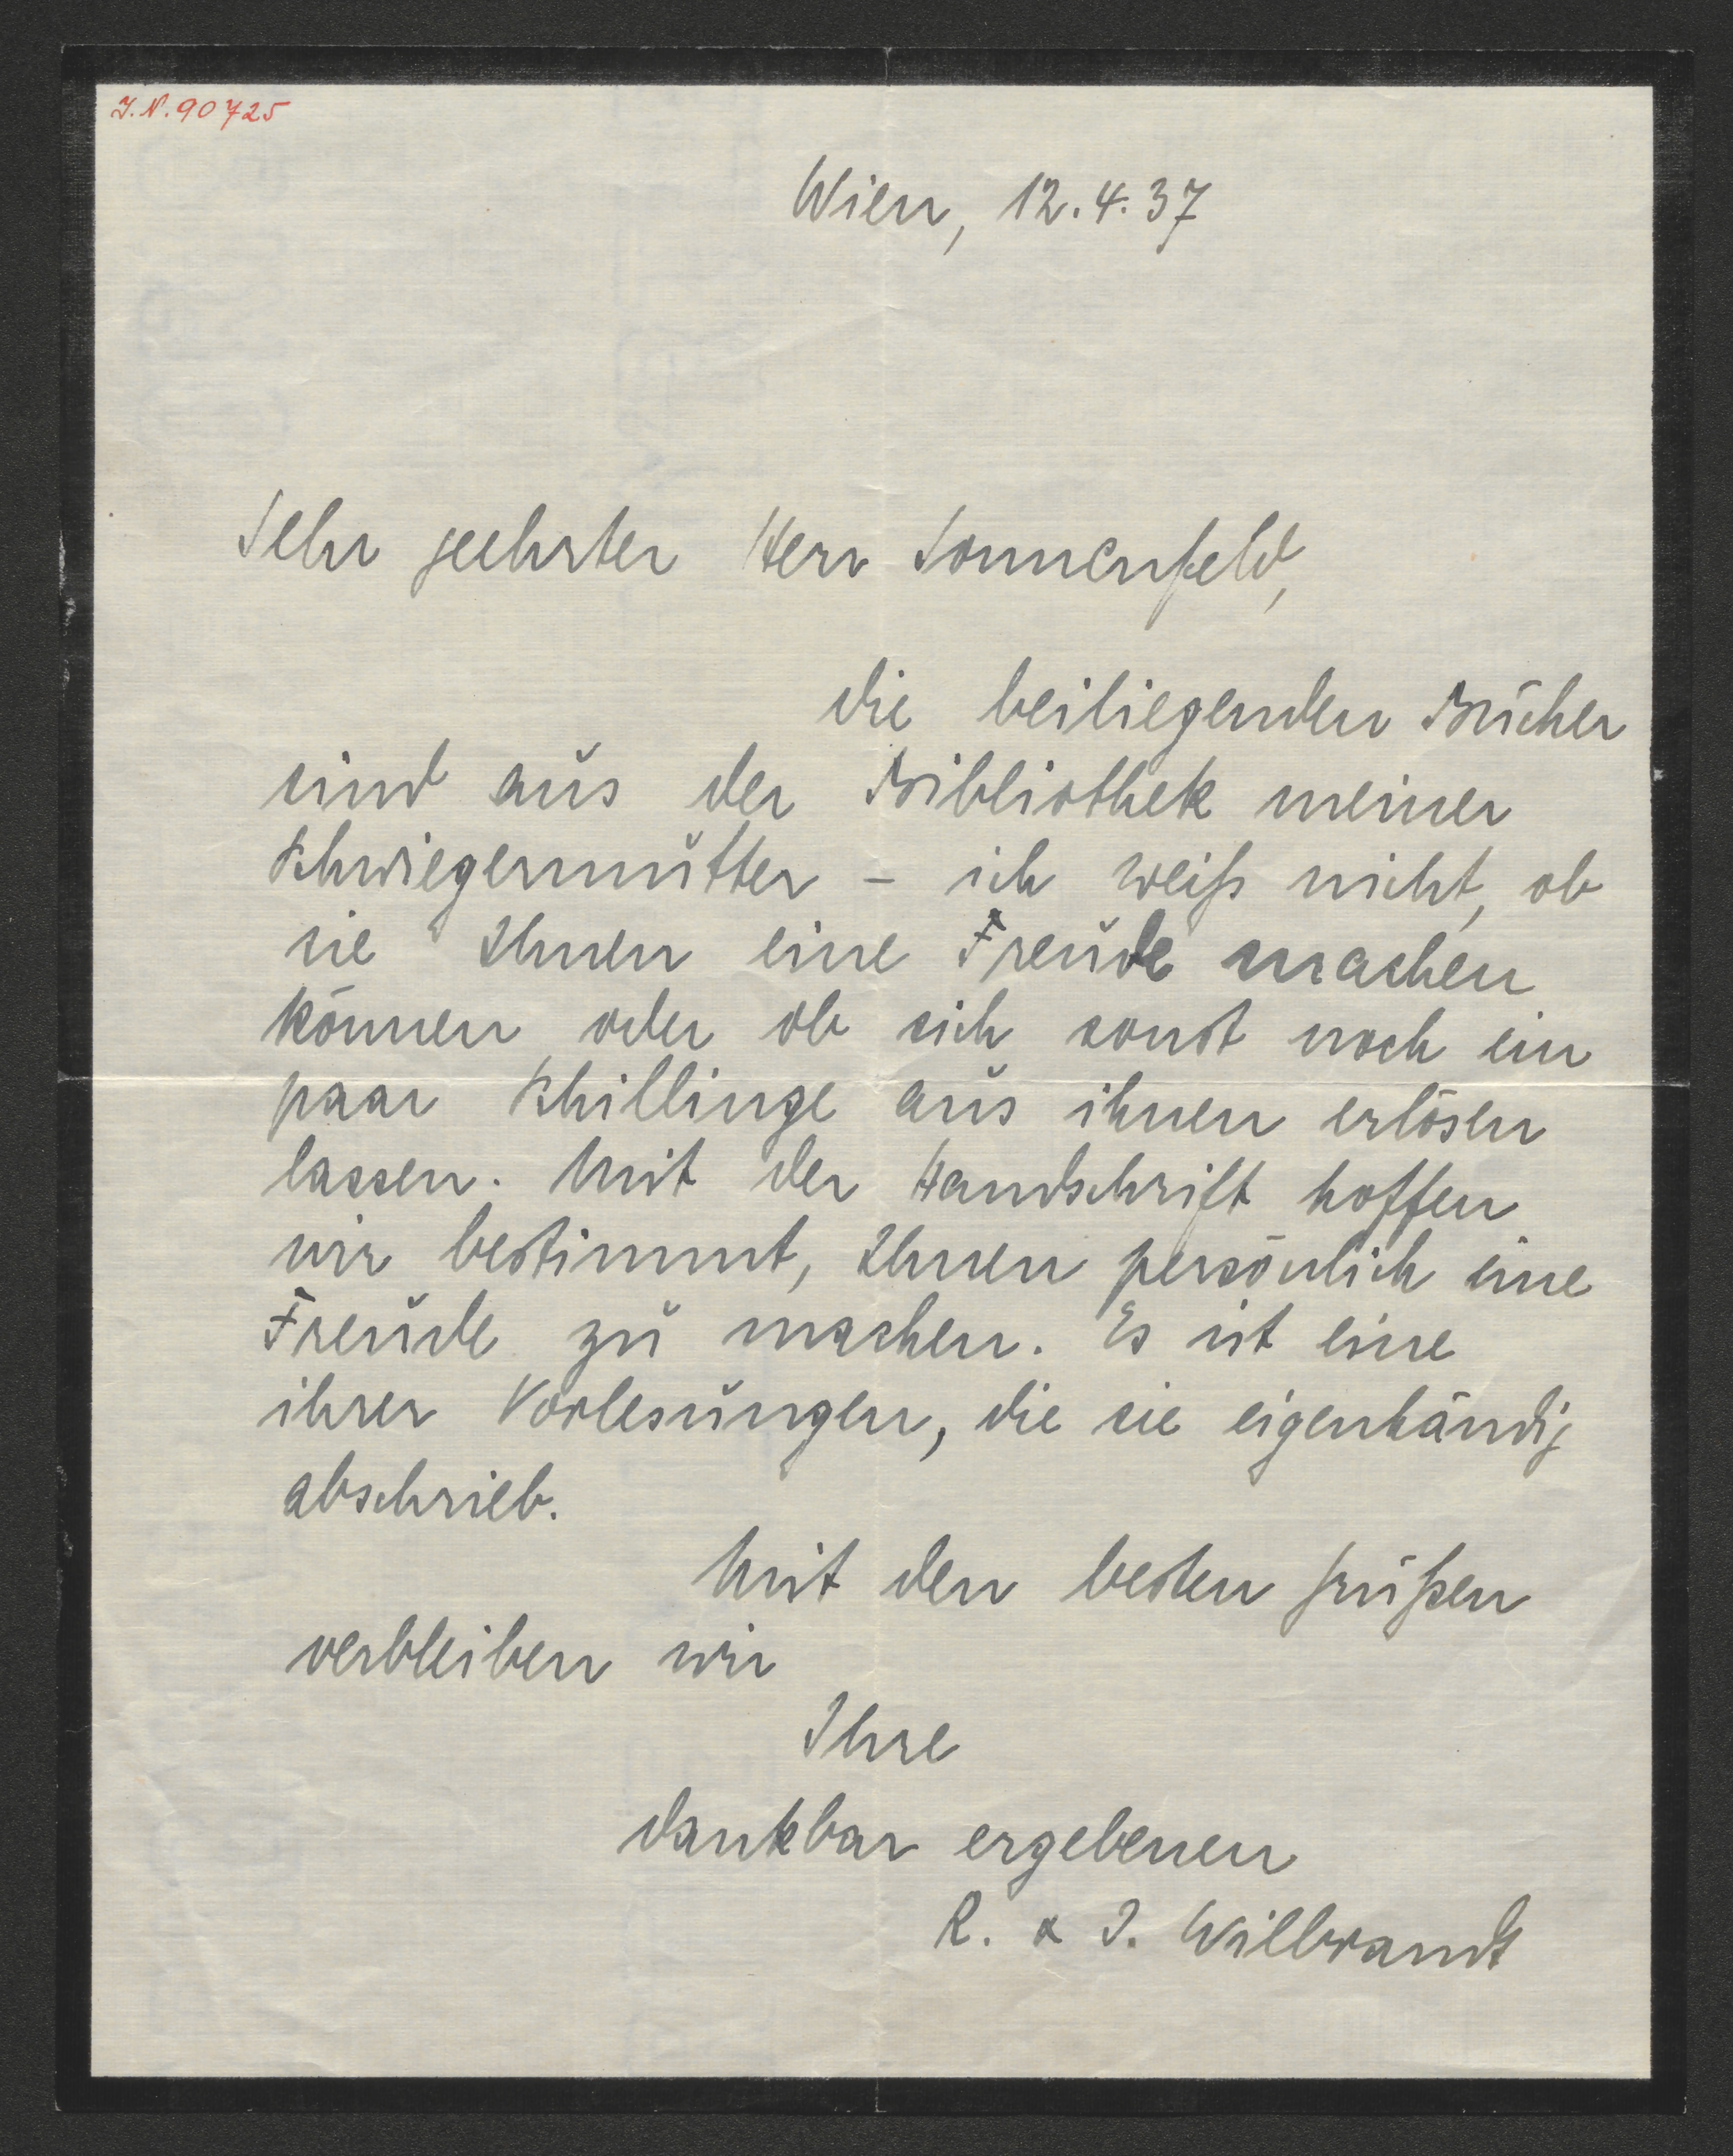 J.N. 90725
Wien, 12.4.37
Sehr geehrter Herr Sonnenfeld,
die beiliegenden Bücher
sind aus der Bibliothek meiner
Schwiegermutter – ich weiß nicht, ob
sie Ihnen eine Freude machen
können oder ob sich sonst noch ein
paar Schillinge aus ihnen erlösen
lassen. Mit der Handschrift hoffen
wir bestimmt, Ihnen persönlich eine
Freude zu machen. Es ist eine
ihrer Vorlesungen, die sie eigenhändig
abschrieb.
Mit den besten Grüßen
verbleiben wir
Ihre
dankbar ergebenen
R. & I. Wilbrandt